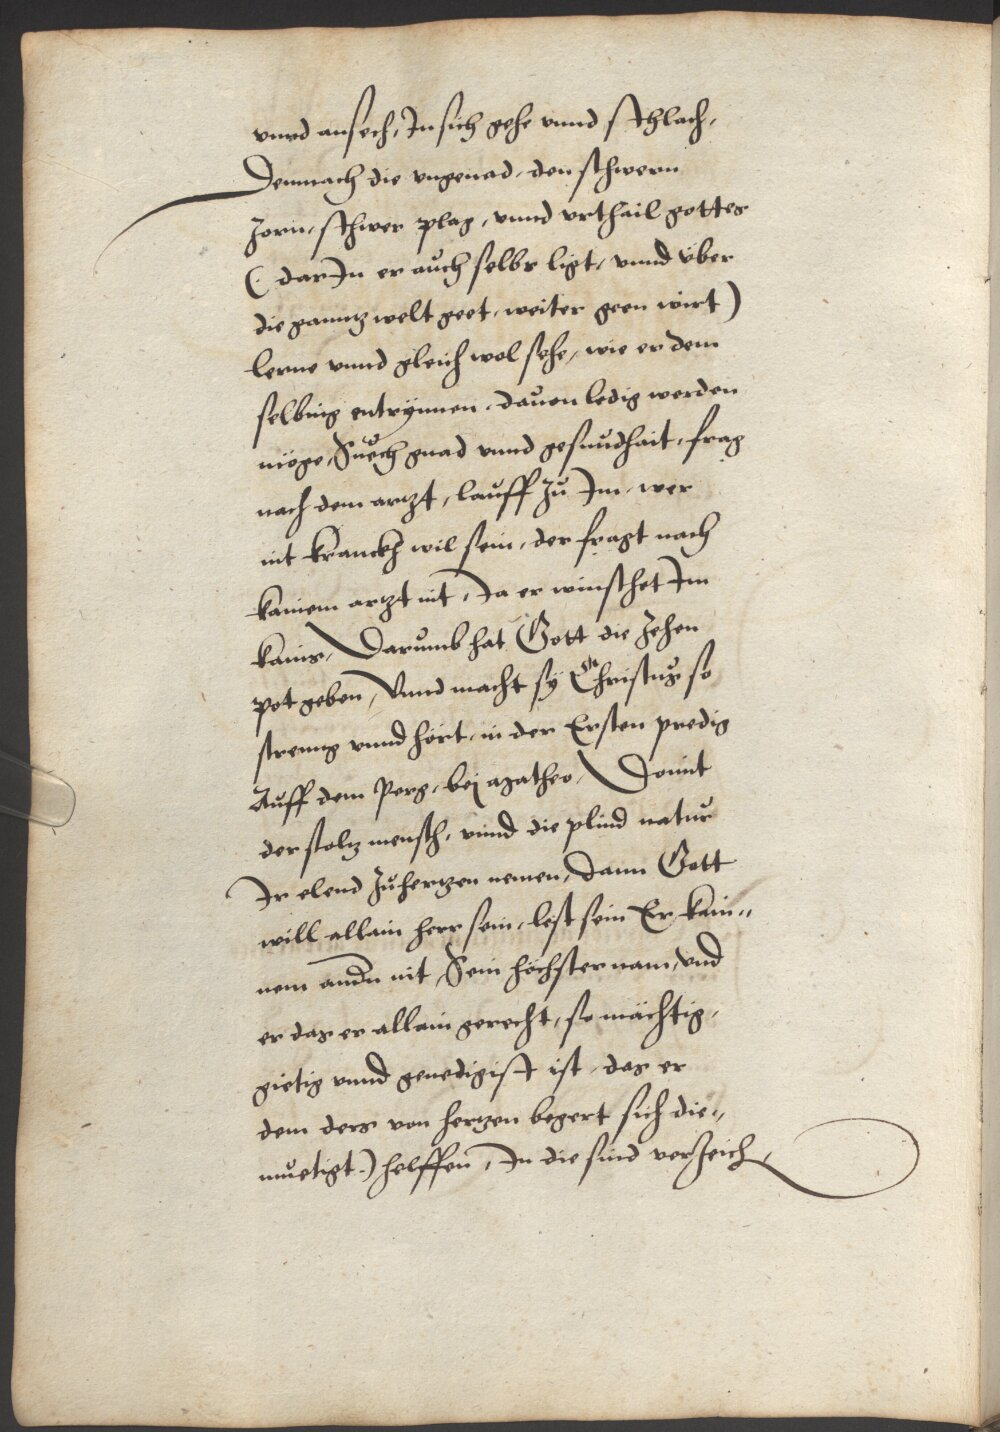 vnnd ansech, In sich gehe vnnd schlach,
Demnach die vngenad, den schwern
Zorn, schwer plag, vnnd vrthail gottes
(: dar In er auch selbs ligt, vnnd über
die ganntz welt geet, weiter geen wirt)
lerne vnnd gleich wol sehe, wie er dem
selbing entrynnen, dauon ledig werden
möge, Suech gnad vnnd gesundhait, frag
nach dem artzt, lauff zu Im, wer
nit kranckh wil sein, der fragt nach
kainem artzt nit, Ja er winschet Im
kains, Darumb hat Gott die zehen
pot geben, Vnnd macht sy Christus so
streng vnnd hört, in der Ersten predig
Auff dem Perg, bej Matheo, Damit
der stoltz mensch, vnnd die plind natur
Ir elend zuhertzen nemen, Dann Gott
will allain herr sein, lest sein Er kain,,
nem andn nit, Sein höchster nam, vnd
er das er allain gerecht, so mächtig,
gietig vnnd genedigist ist, das er
dem ders von hertzen begert sich die,,
muetigt.) helffen, In die sind verzeich,